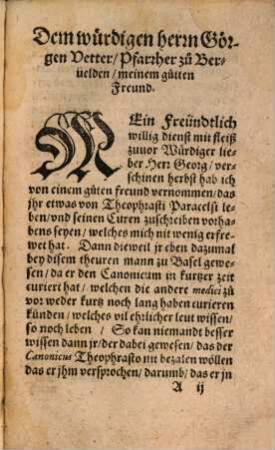 Dem würdigen herrn Gör-
gen Vetter / Pfarrher zů Ber-
uelden / meinem gůtten
Freund.
MEin Freündtlich
willig dienst mit fleiß
zuuor Würdiger lie-
ber Herr Georg / ver-
schinen herbst hab ich
von einem gůten freund vernommen / das
jhr etwas von Theophrasti Paracelsi le-
ben / vnd seinen Curen zuschreiben vorha-
bens seyen / welches mich nit wenig erfre-
wet hat. Dann dieweil jr eben dazumal
bey disem theuren mann zu Basel gewe-
sen / da er den Canonicum in kurtzer zeit
curiert hat / welchen die andere medici zů
vor weder kurtz noch lang haben curieren
künden / welches vil ehrlicher leut wissen /
so noch leben / So kan niemandt besser
wissen dann jr / der dabei gewesen / das der
Canonicus Theophrasto nit bezalen wöllen
das er jhm versprochen / darumb / das er jn
A ij